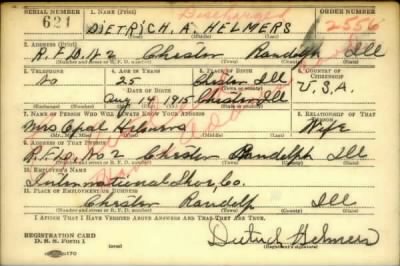 SERIAL NUMBER 1. NAME (Print) Discharged ORDER NUMBER
621 DIETRICH. A. HELMERS 2556
(First) (Middle) (Last)
2. ADDRESS (Print)
R.F.D. No 2 Chester Randolph Ill
(Number and street or R. F. D. number) (Town) (County) (State)
3. TELEPHONE 4. AGE IN YEARS 5. PLACE OF BIRTH 6. COUNTRY OF CITIZENSHIP
No 25 Chester Ill
DATE OF BIRTH
Aug 14 1915 Chester Ill U.S.A.
7. NAME OF PERSON WHO WILL ALWAYS KNOW YOUR ADDRESS 8. RELATIONSHIP OF THAT PERSON
Mrs Opal Helmers Wife
9. ADDRESS OF THAT PERSON
R.F.D. No 2 Chester Randolph Ill
(Number and street or R. F. D. number) (Town) (County) (State)
10. EMPLOYER'S NAME
International Shoe, Co.
11. PLACE OF EMPLOYMENT OR BUSINESS
Chester Randolp Ill
(Number and street or R. F. D. number) (Town) (County) (State)
I AFFIRM THAT I HAVE VERIFIED ABOVE ANSWERS AND THAT THEY ARE TRUE.
REGISTRATION CARD
D. S. S. Form 1 Dietrich Helmers
(Registrant's signature)